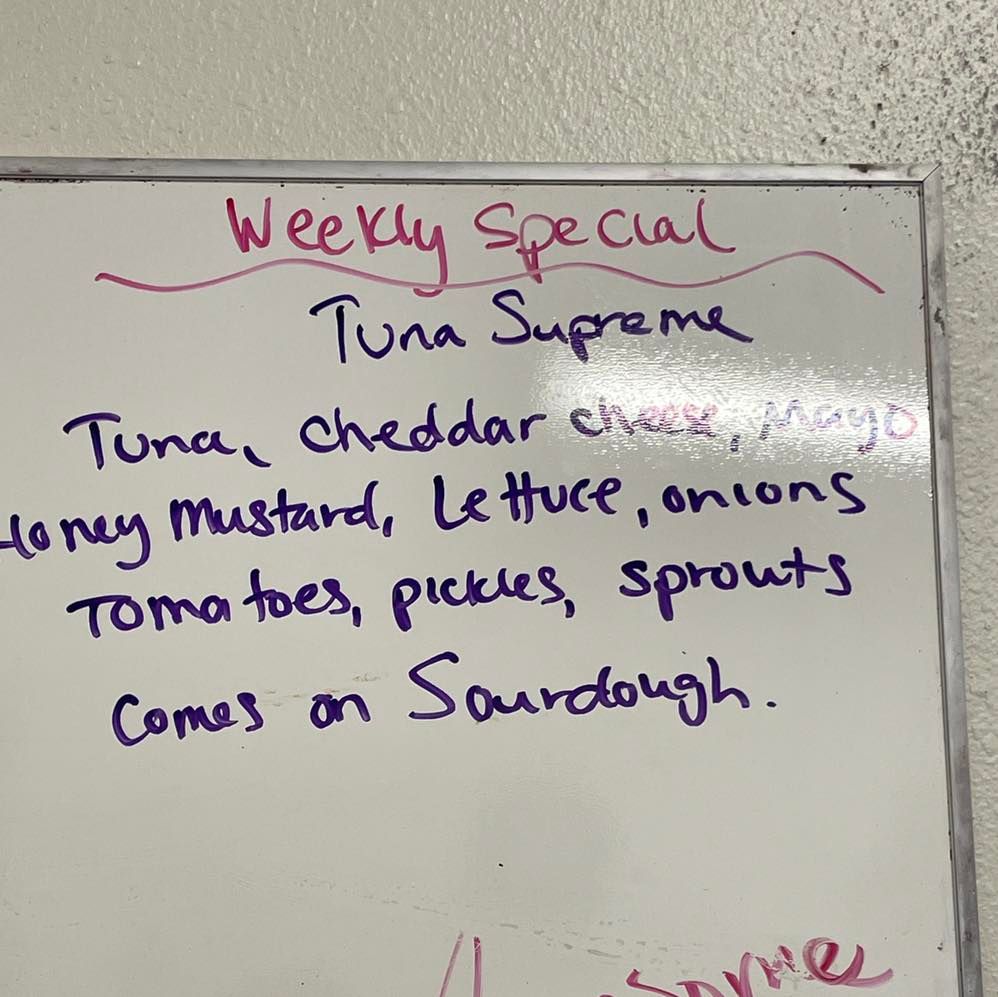 Weekly Special
Tuna Supreme
Tuna, cheddar cheese, mayo
Honey Mustard, Lettuce, onions
Tomatoes, pickles, sprouts
Comes on Sourdough.